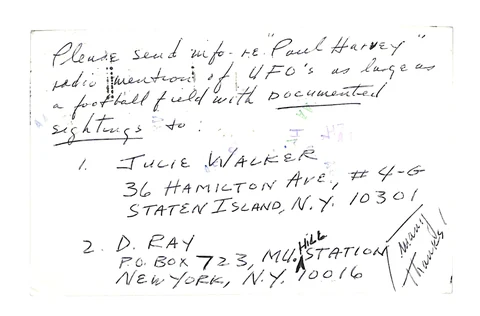 Please send info re "Paul Harvey"
radio mention of UFO's as large as
a football field with documented
sightings to:
1. JULIE WALKER
36 HAMILTON AVE., # 4-G
STATEN ISLAND, N.Y. 10301
2. D. RAY
P.O. BOX 723, M4. HILL STATION
NEW YORK, N.Y. 10016
many
thanks!